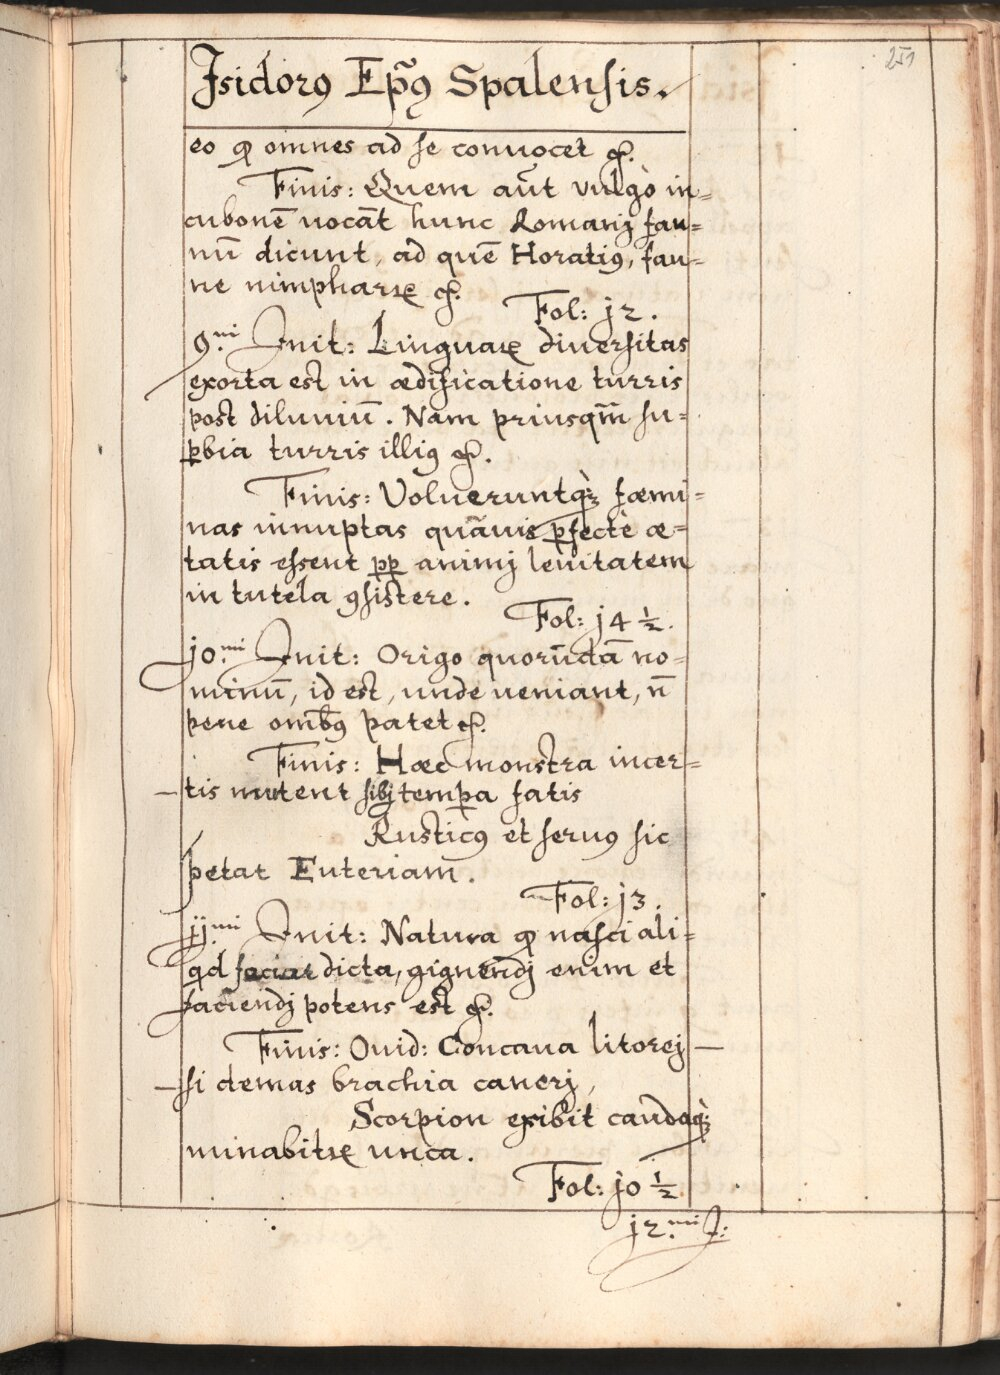 251
Isidorꝰ Ep̃ꝰ Spalensis.
eo qƺ omnes ad se conuocet &c.
Finis: Quem aũt vulgò in=
cubonē uocāt hunc Romanij fau=
nū dicunt, ad quē Horatiꝰ, fau=
ne nimpharꝝ &c.
Fol: j2.
9.ni Init: Linguaꝝ diuersitas
exorta est in ædificatione turris
post diluuiū. Nam priusqm̃ su=
ꝑbia turris illiꝰ &c.
Finis: Volueruntq̀ꝫ fæmi=
nas innuptas quāuis ꝑfectè æ=
tatis essent ꝓꝑ animj leuitatem
in tutela ꝯsistere.
Fol: j4 ½.
jo.mi Init: Origo quorūdā no=
minū, id est, unde ueniant, n̄
pene omībꝰ patet &c.
Finis: Hæc monstra incer=
tis mutent sibj temꝑa fatis
Rusticꝰ et seruꝰ sic
petat Euteriam.
Fol: j3.
jj.mi Init: Natura qƺ nasci ali=
qd faciat dicta, gignendj enim et
faciendj potens est &c.
Finis: Ouid: Concaua litorej
si demas brachia cancrj,
Scorpion exibit caudaq̀ꝫ
minabitꝝ unca.
Fol: jo ½
j2.mi J: